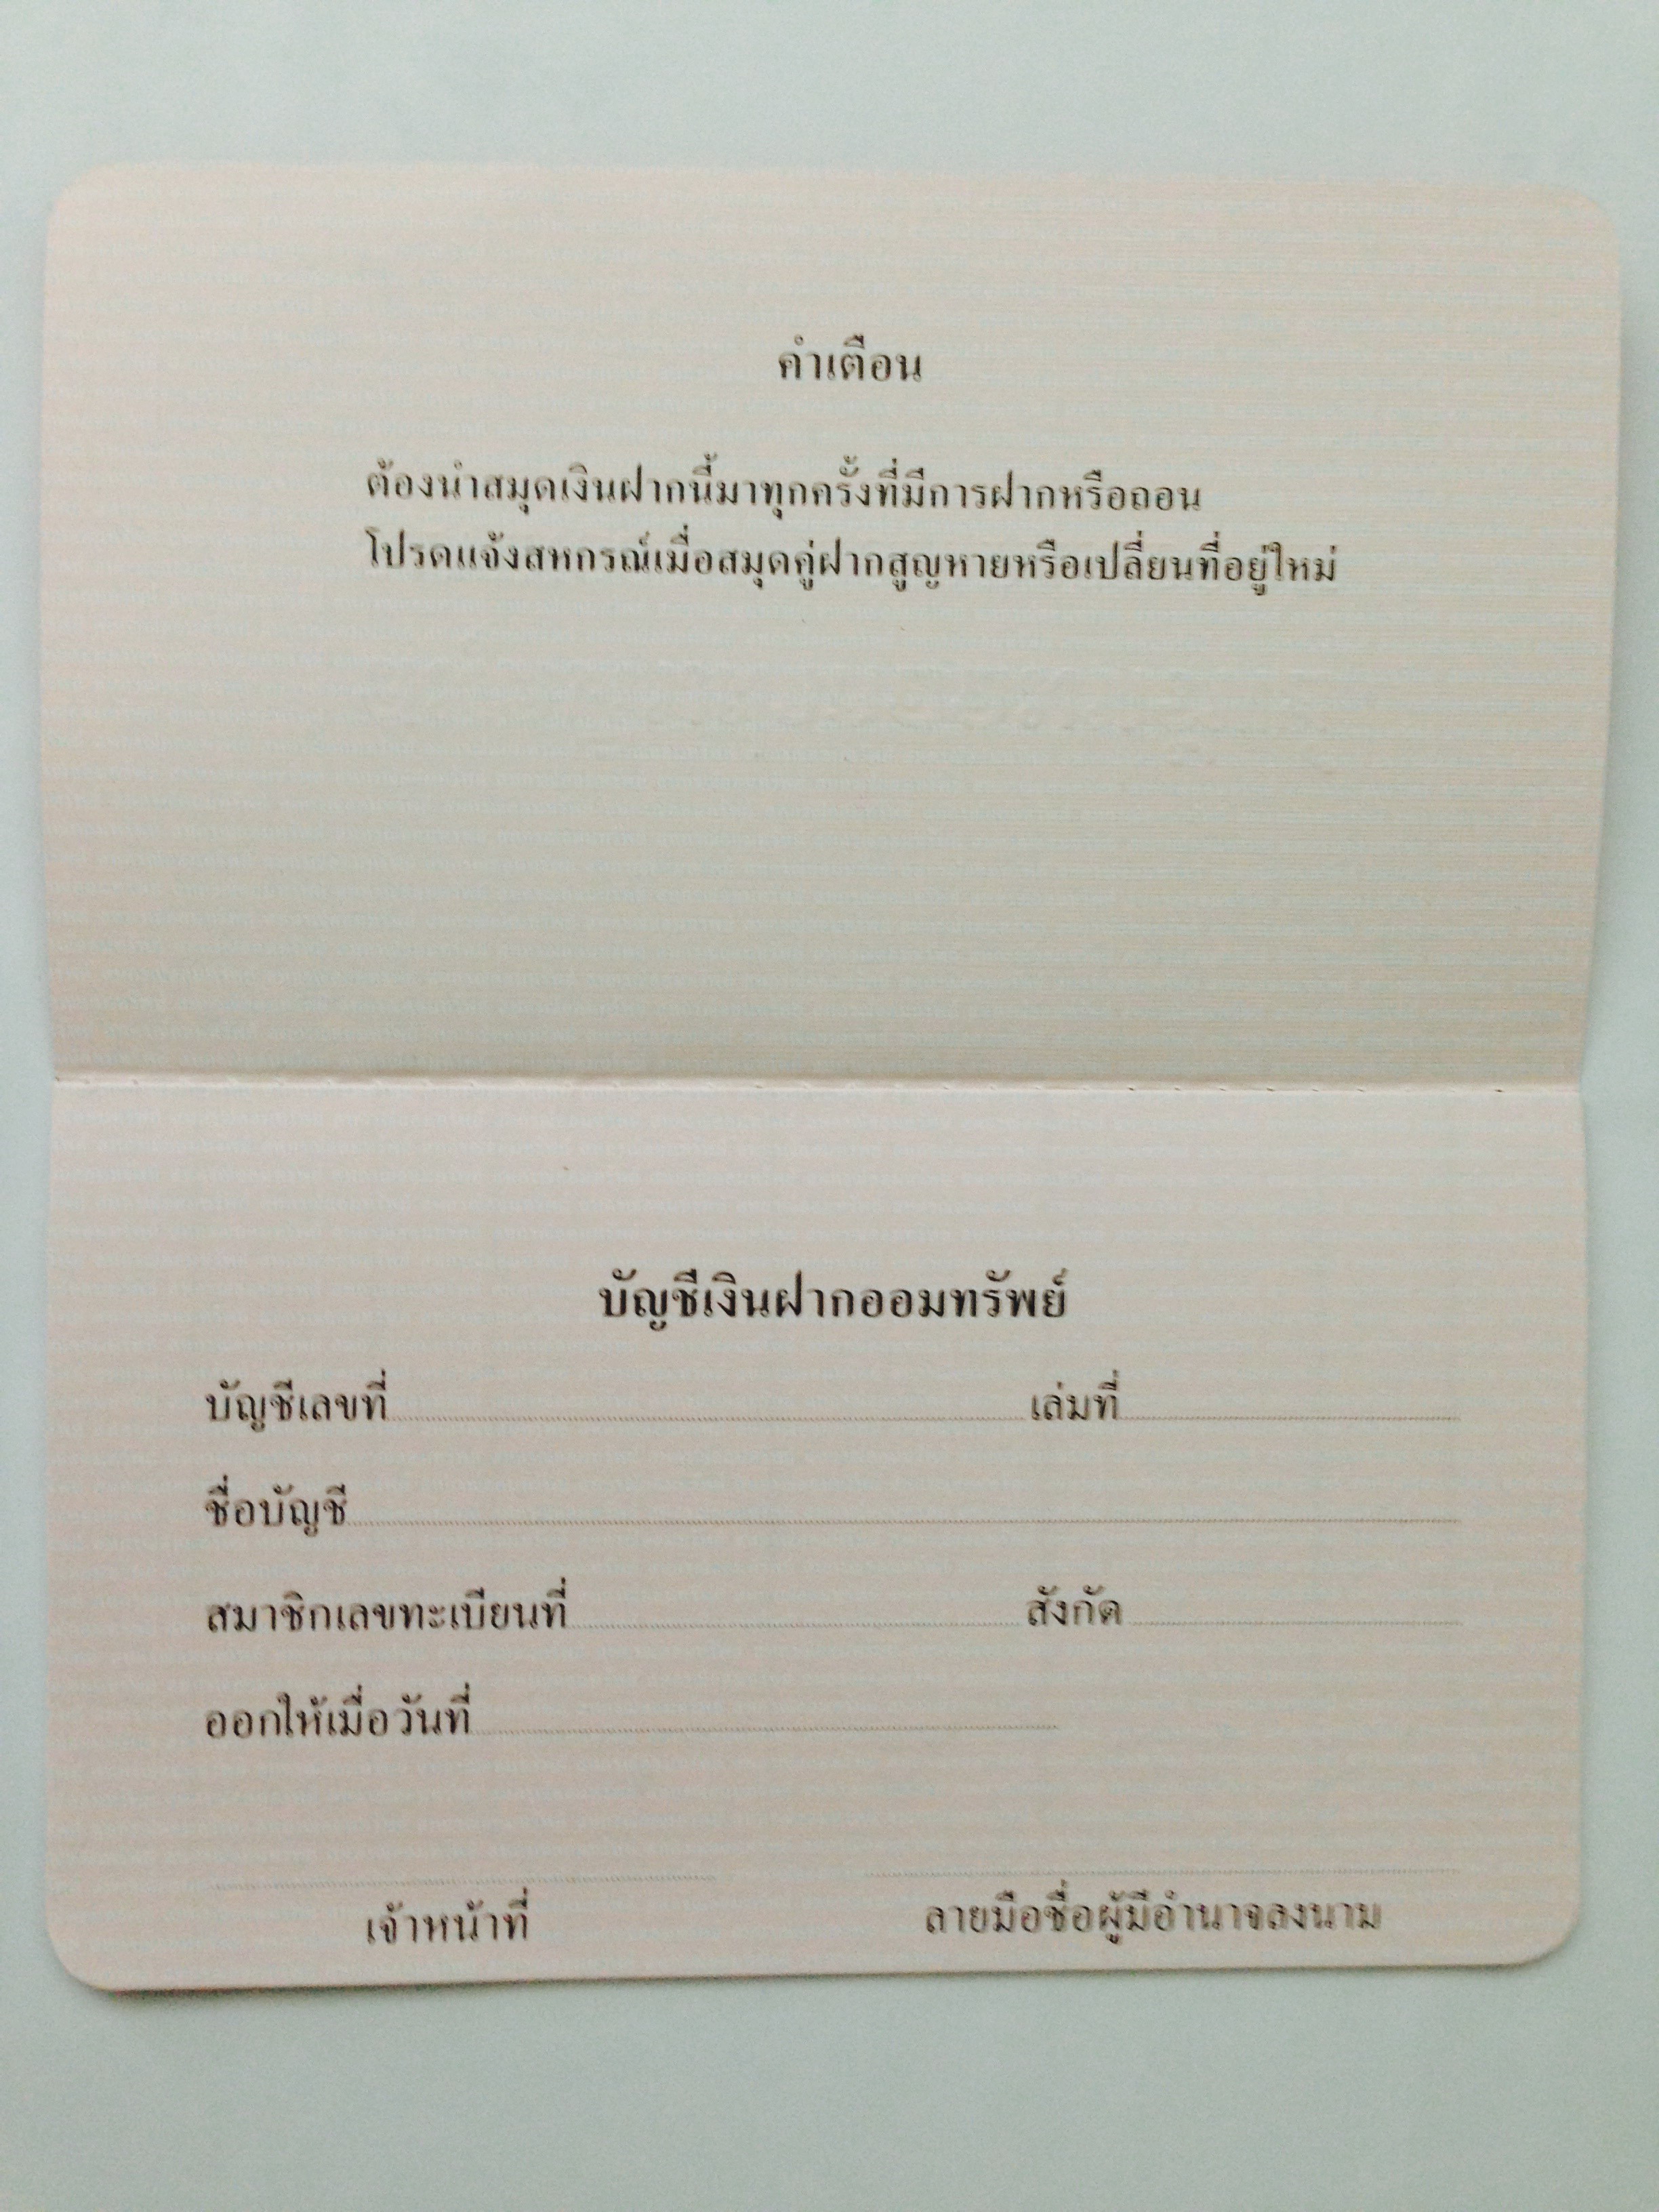 คำเตือน
ต้องนำสมุดเงินฝากนี้มาทุกครั้งที่มีการฝากหรือถอน
โปรดแจ้งสหกรณ์เมื่อสมุดคู่ฝากสูญหายหรือเปลี่ยนที่อยู่ใหม่
บัญชีเงินฝากออมทรัพย์
บัญชีเลขที่ เล่มที่
ชื่อบัญชี
สมาชิกเลขทะเบียนที่ สังกัด
ออกให้เมื่อวันที่
เจ้าหน้าที่ ลายมือชื่อผู้มีอำนาจลงนาม